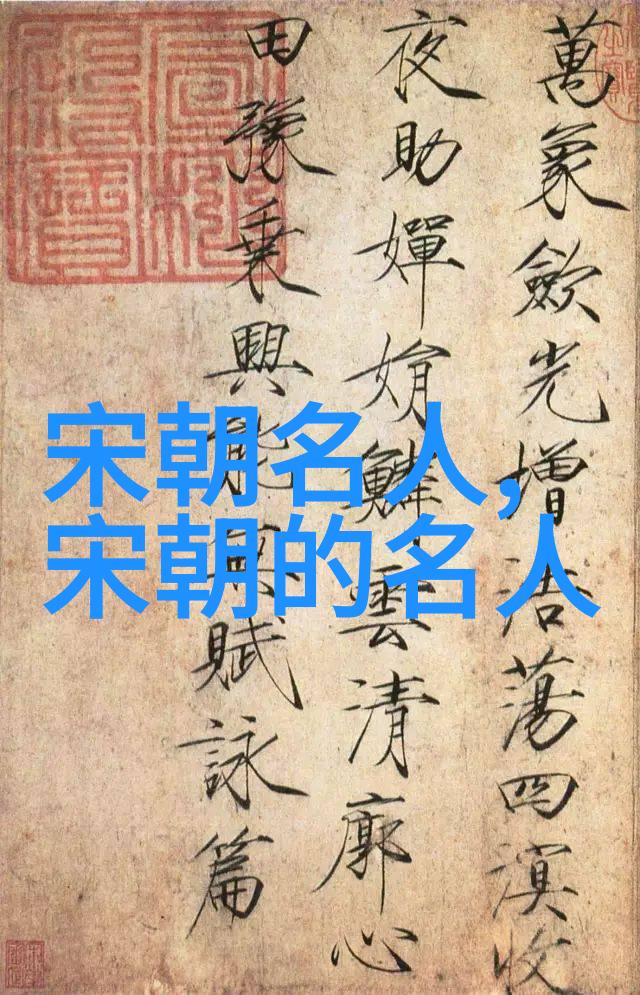 宋朝名人,
宋朝的名人
萬象歛光增浩蕩四溟收
夜助嬋娟鱗雲清廓心
田豫乗興能無賦詠篇